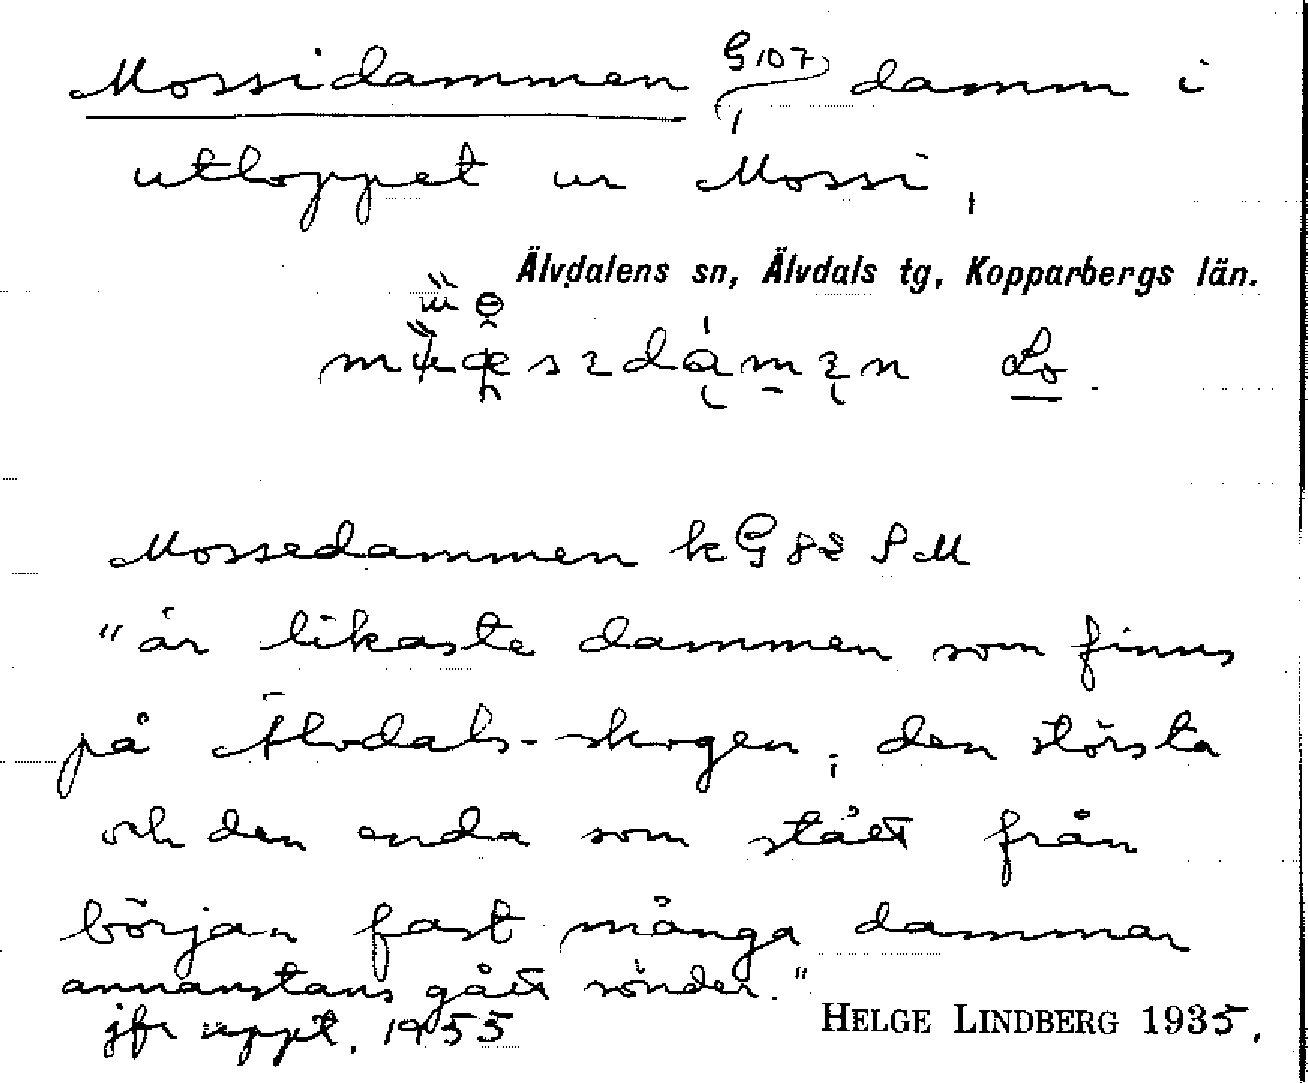 Mossidammen G107/1 damm i
utloppet ur Mossi,
Älvdalens sn, Älvdals tg, Kopparbergs län.
Lo.
Mossedammen k G 82 S M
"är likaste dammen som finns
på Älvdals-skogen, den största
och den enda som stått från
början fast många dammar
annanstans gått sönder."
jfr uppt. 1955 HELGE LINDBERG 1935,